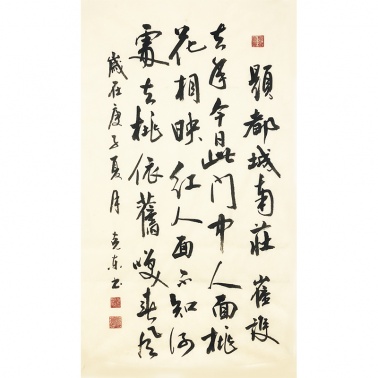 題都城南莊 崔護
去年今日此門中人面桃
花相映红人面不知何
處去桃依舊咲春风
歲在庚子夏月 东书